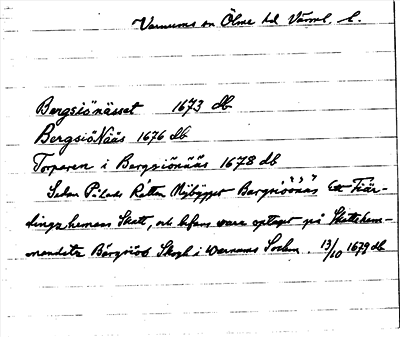 Varnums sn Ölme hd Värml. l.
Bergsiönässet 1673 db
BergsiöNääs 1676 db
Torparen i Bargsiönääs 1678 db
Sedan Rätten Nybÿgget Bargsiöönäs Ett Fiär-
dingz hemans Skatt, och befans vara optaget på Skattehem-
manditz Bärgsiöö Skogh i Warnums Sochn. 13/10 1679 db